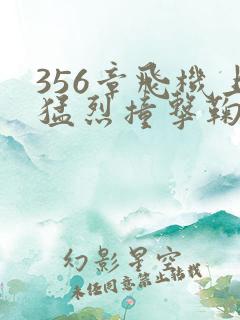 356章飛機上
猛烈撞擊鞠
幻影星空
未经同意禁止转载